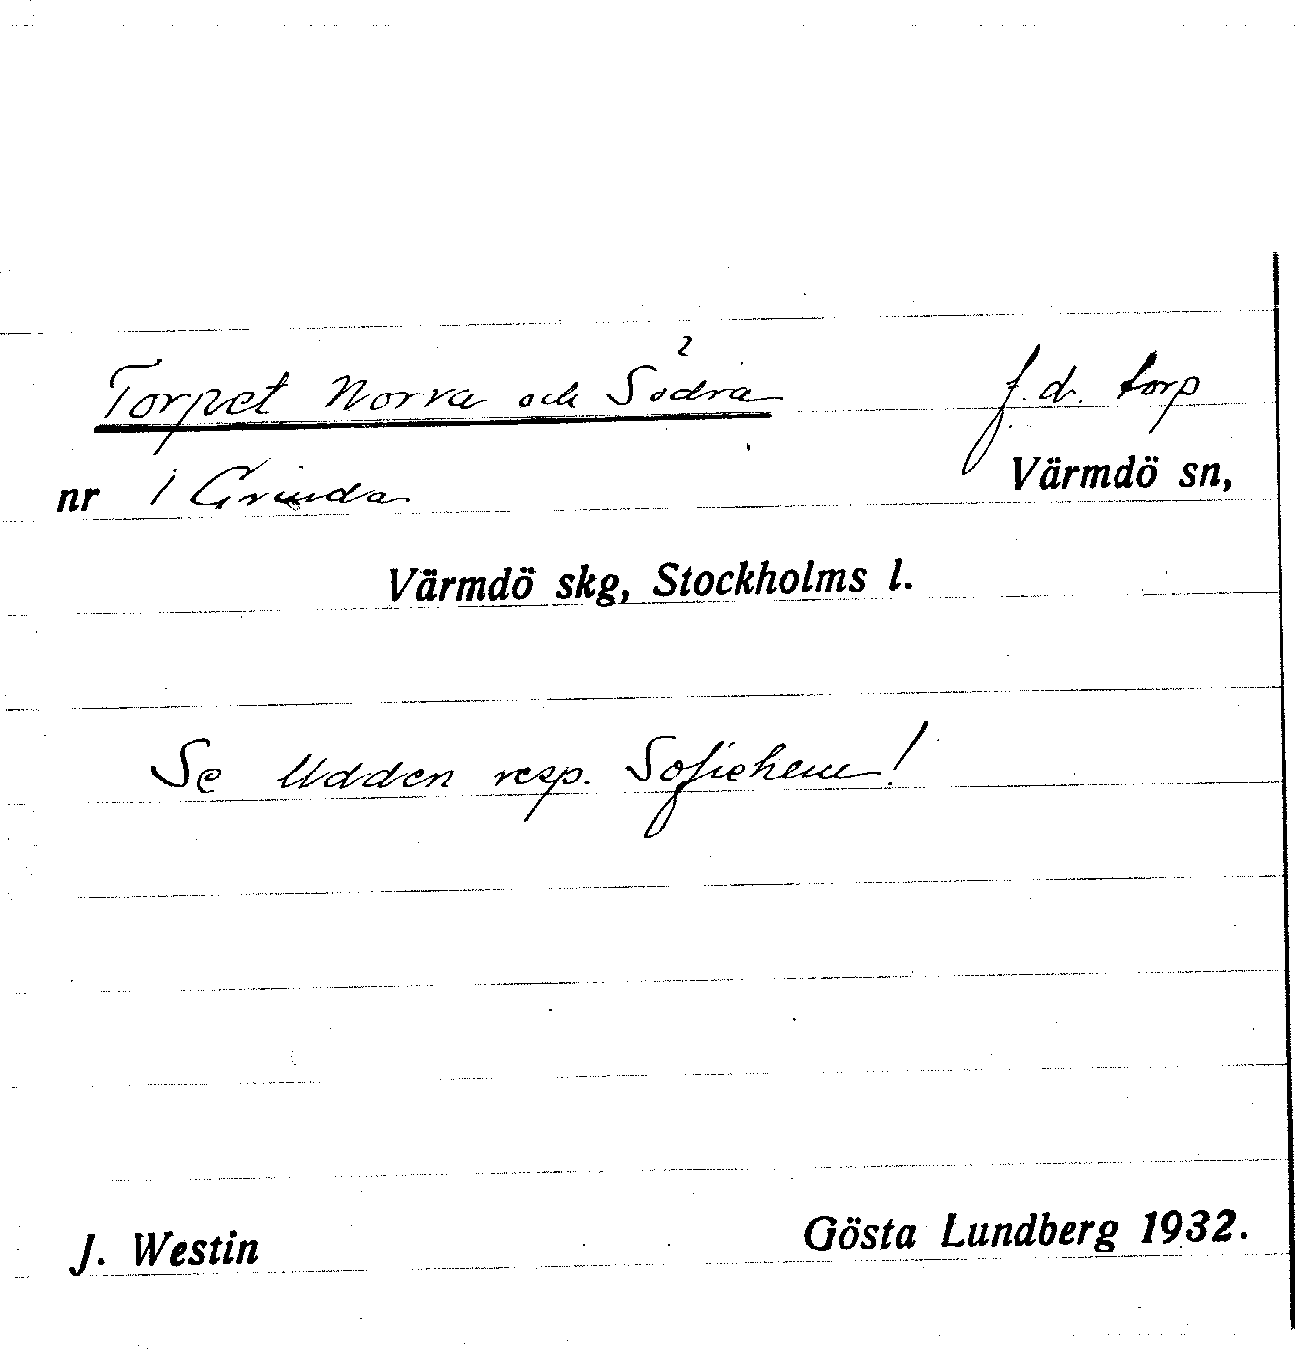 Torpet Norra och Södra f.d. torp
nr 1 Grinda Värmdö sn,
Värmdö skg, Stockholms l.
Se Udden resp. Sofiehem!
J. Westin Gösta Lundberg 1932.